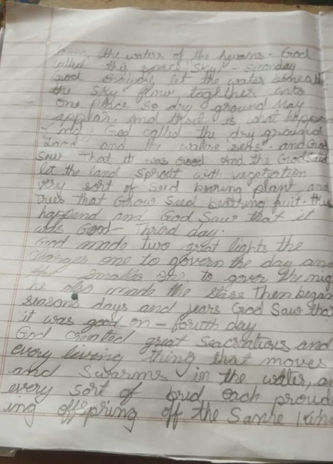 the waters of the heavens. God
called this space Sky - seconday
God let the water beneath
the sky flow together into
one place so dry ground May
appear And that is what happen
God called the dry ground
land and the waters seas. and God
saw that it was Good And the God said
let the land sprout with vegetation
very sort of Seed bearing plant and
Trees that Grow Seed fruit. this
happend and God Saw that it
was Good - Third day.
God made two great lights the
one to govern the day and
the smaller one to gover the nig
he also made the stars Then began
seasons days and years God Saw that
it was good on - fourth day
God created great Seacreatures and
every living thing that moves
and Swarms in the water, a
every sort of brid each proud
ing offspring off the Same kin